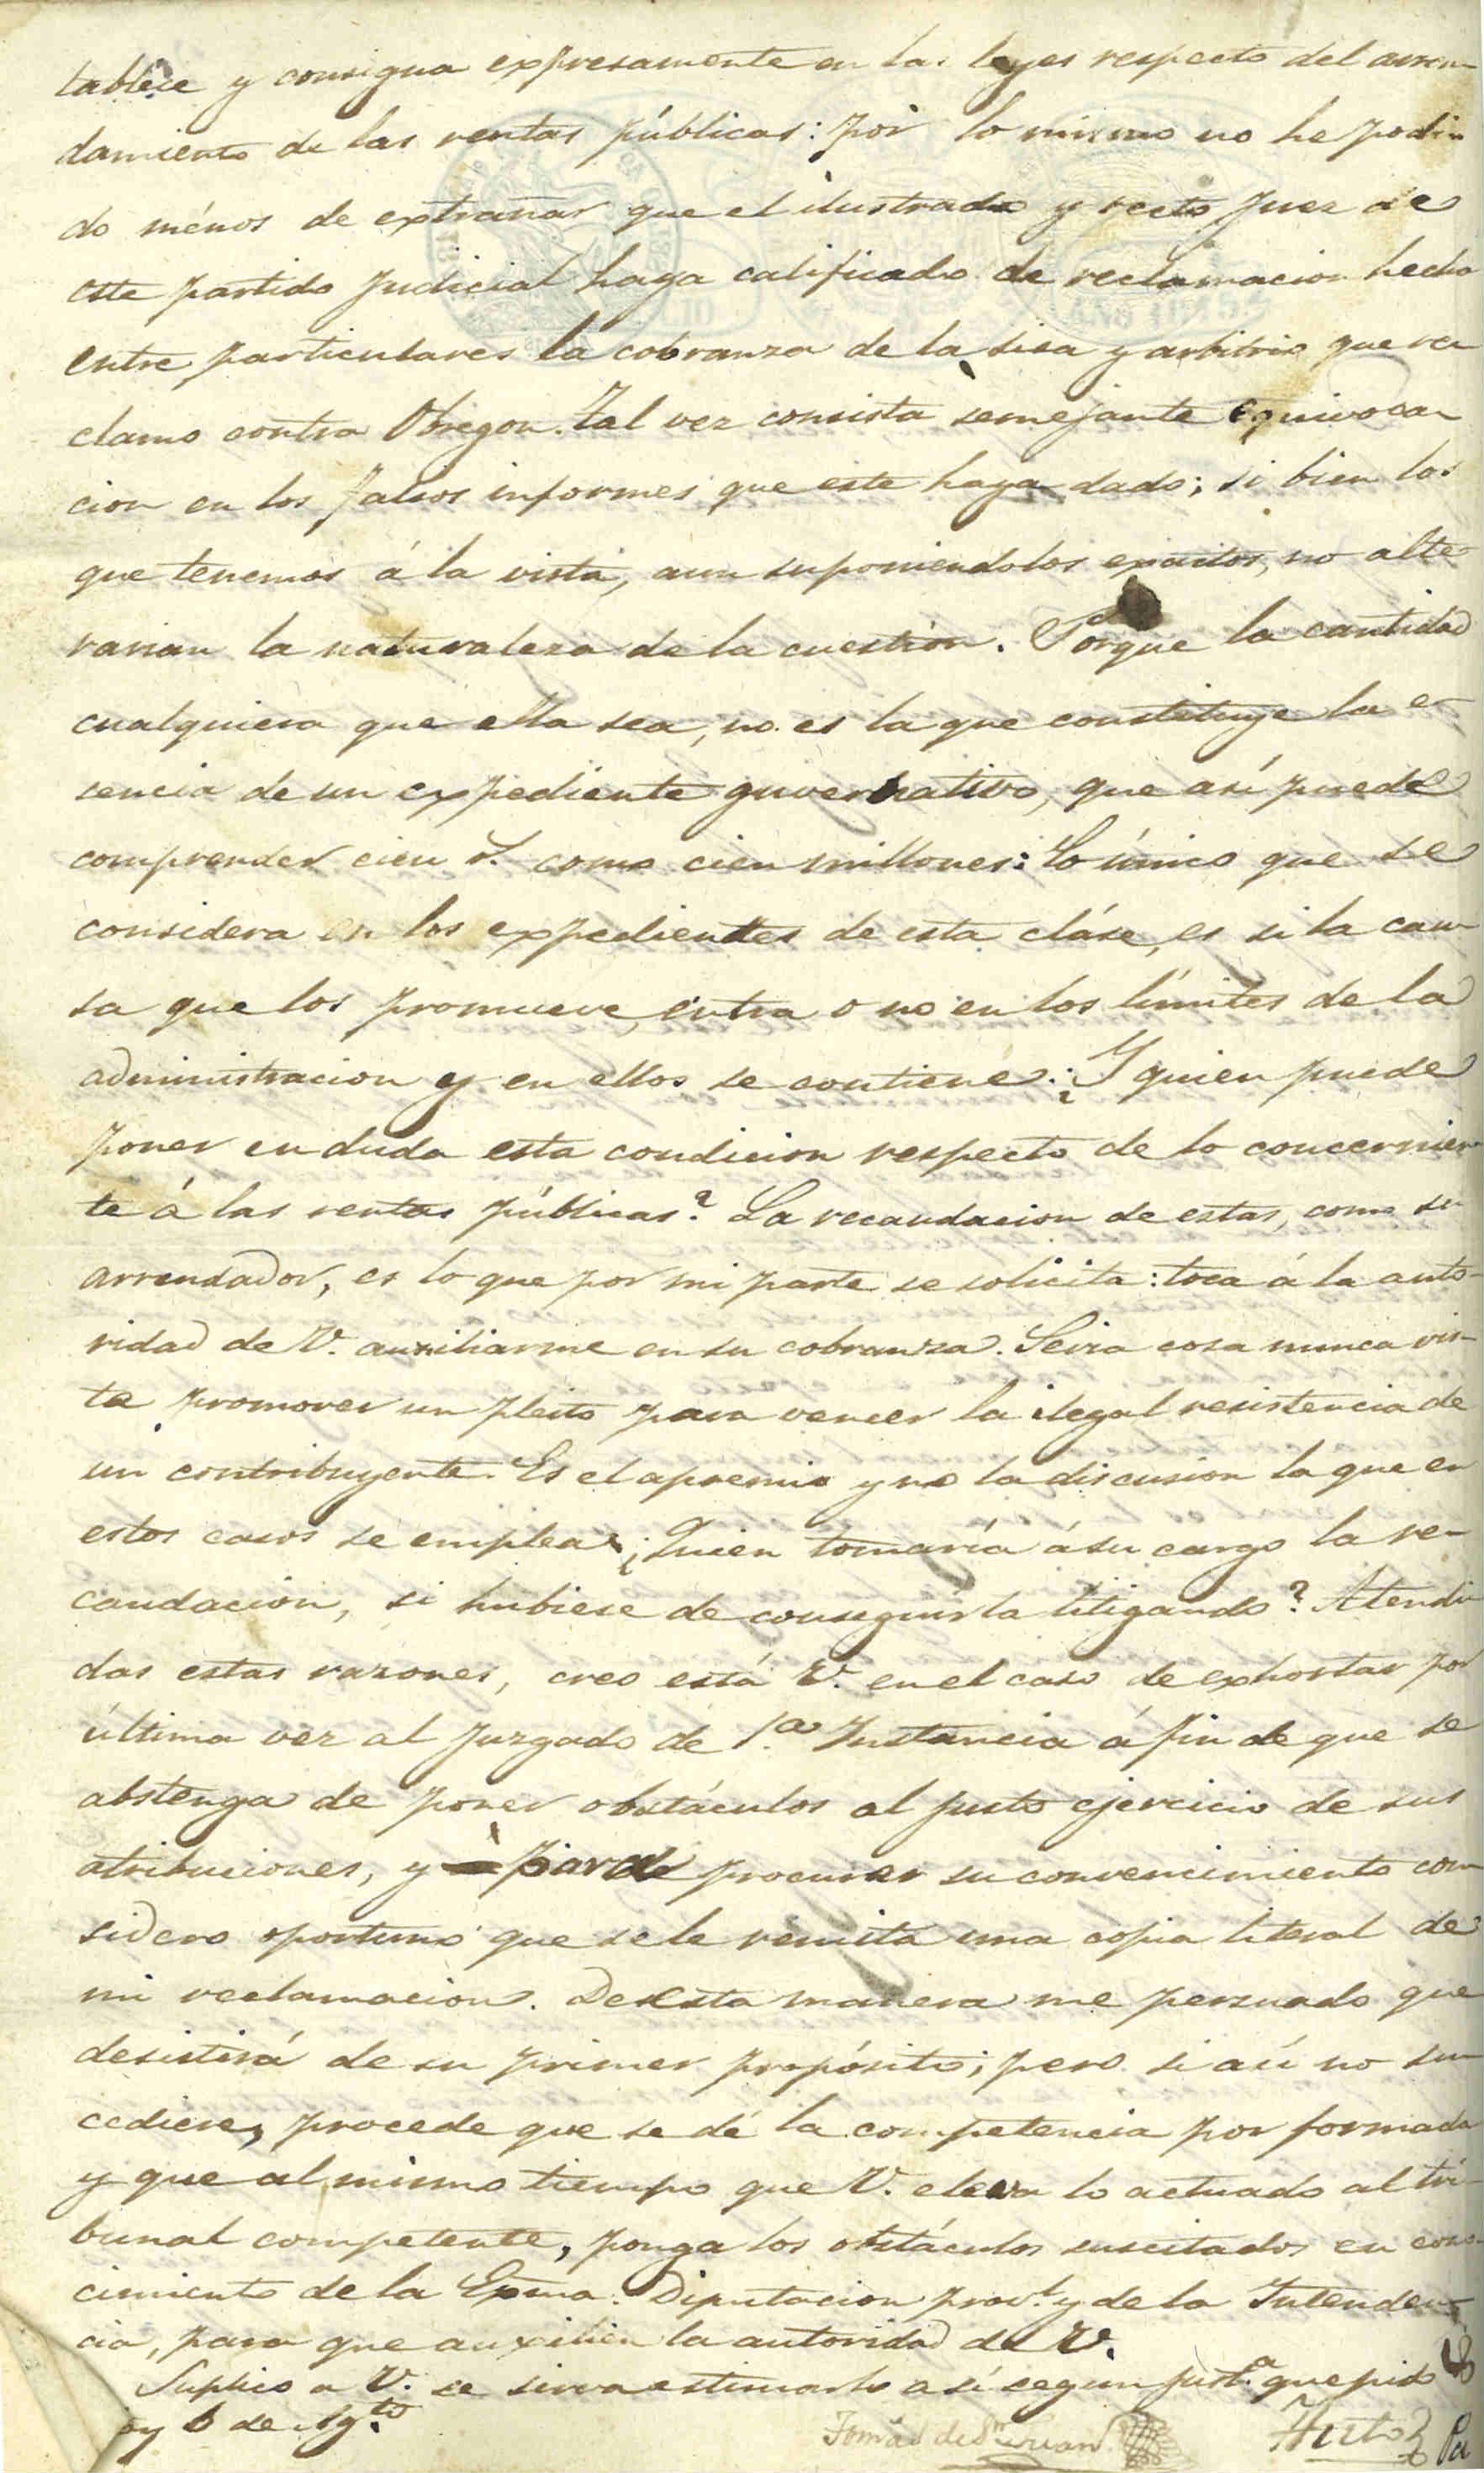 tablece y consigna expresamente en las leyes respecto del arren-
damiento de las rentas públicas: por lo mismo no he podi-
do ménos de extrañar que el ilustrado y recto Juez de
este partido judicial haya calificado de reclamacion hecha
entre particulares la cobranza de la sisa y arbitrio que re-
clamo contra Obregon. Tal vez consista semejante equivoca-
cion en los falsos informes que este haya dado; si bien los
que tenemos á la vista, aun suponiendolos exactos, no alte-
rarian la naturaleza de la cuestion. Porque la cantidad
cualquiera que ella sea, no es la que constituye la e-
sencia de un expediente guvernativo, que así puede
comprender cien r. como cien millones: lo único que se
considera en los expedientes de esta cláse, es si la cau-
sa que los promueve, entra o no en los límites de la
administracion y en ellos se contiene: ¿Y quien puede
poner en duda esta condicion respecto de lo concernien-
te á las rentas públicas? La recaudacion de estas, como su
arrendador, es lo que por mi parte se solicita: toca á la auto-
ridad de V. auxiliarme en su cobranza. Seria cosa nunca vis-
ta promover un pleito para vencer la ilegal resistencia de
un contribuyente. Es el apremio y no la discusion la que en
estos casos se emplea. ¿Quien tomaría á su cargo la re-
caudacion, si hubiese de conseguirla litigando? Atendi-
das estas razones, creo está V. en el caso de exhortar por
última vez al Juzgado de 1.a Instancia á fin de que se
abstenga de poner obstáculos al justo ejercicio de sus
atribuciones, y para procurar su convencimiento con-
sidero oportuno que se le remita una copia literal de
mi reclamacion. De esta manera me persuado que
desistirá de su primer propósito; pero si así no su-
cediere, procede que se dé la competencia por formada
y que al mismo tiempo que V. eleva lo actuado al tri-
bunal competente, ponga los obstáculos suscitados en cono-
cimiento de la Exma. Diputacion prov.l y de la Intenden-
cia, para que auxilien la autoridad de V.
Suplico a V. se sirva estimarlo así segun just.a que pido
oy 6 de Ag.to
Tomás de Sn Juan